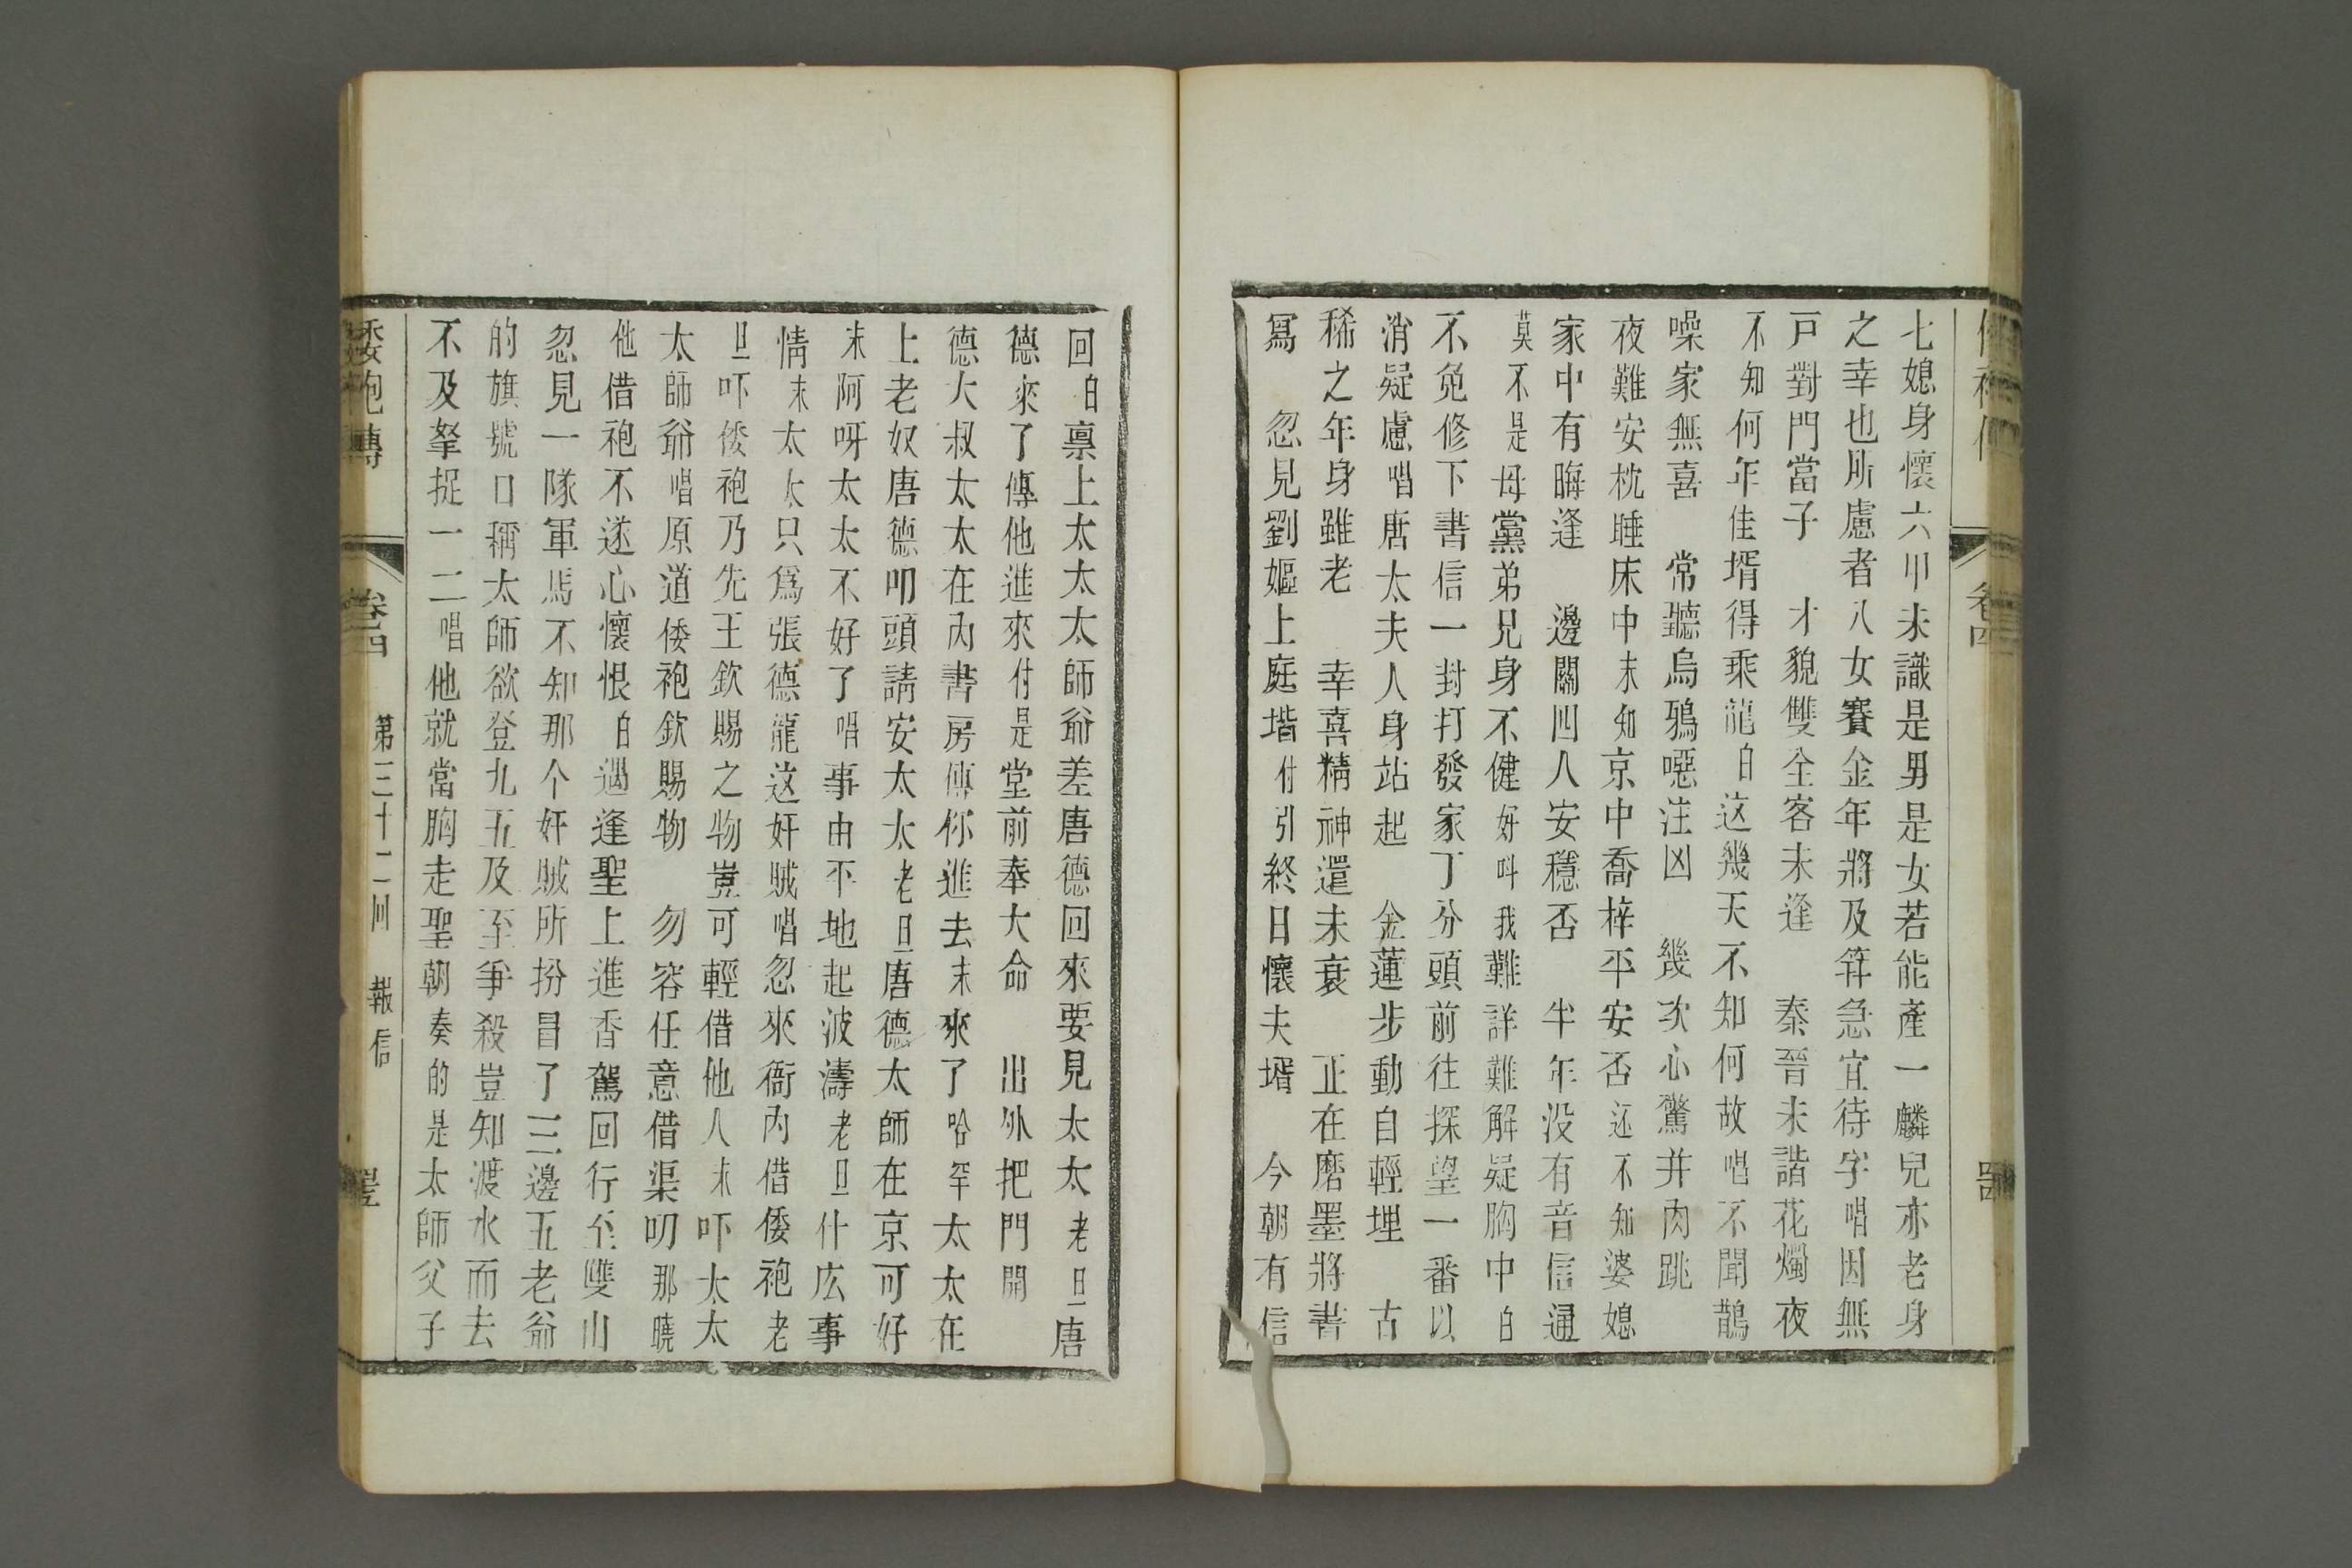 七媳身懷六甲未識是男是女若能產一麟兒亦老身
之幸也所慮者八女賽金年將及笄急宜待字唱因無
戸對門當子 才貌雙全客未逢 秦晉未諧花燭夜
不知何年佳壻得乘龍白这幾天不知何故唱不聞鵲
噪家無喜 常聽烏鴉噁注凶 幾次心驚并肉跳
夜難安枕睡床中未知京中喬梓平安否还不知婆媳
家中有晦逢 邊關四人安穩否 半年没有音信通
莫不是母黨弟兄身不健好呌我難詳難解疑胸中白
不免修下書信一封打發家丁分頭前往探望一番以
消疑慮唱唐太夫人身站起 金蓮步動自輕埋 古
稀之年身雖老 幸喜精神還未衰 正在磨墨將書
寫 忽見劉嫗上庭堦付引終日懷夫壻 今朝有信
回白禀上太太太師爺差唐德回來要見太太老旦唐
德來了傳他進來付是堂前奉大命 出外把門開
德大叔太太在内書房傳你進去末來了哈罕太太在
上老奴唐德叩頭請安太太老旦唐德太師在京可好
末阿呀太太不好了唱事由平地起波濤老旦什広事
情末太太只爲張德龍这奸賊唱忽來衙内借倭袍老
旦吓倭袍乃先王欽賜之物豈可輕借他人末吓太太
太師爺唱原道倭袍欽賜物 勿容任意借渠叨那曉
他借袍不遂心懷恨白遇逢聖上進香駕回行至雙山
忽見一隊軍馬不知那个奸賊所扮冒了三邊五老爺
的旗號口稱太師欲登九五及至爭殺豈知渡水而去
不及拏捉一二唱他就當胸走聖朝奏的是太師父子
倭袍傳 卷四 第三十二回 報信